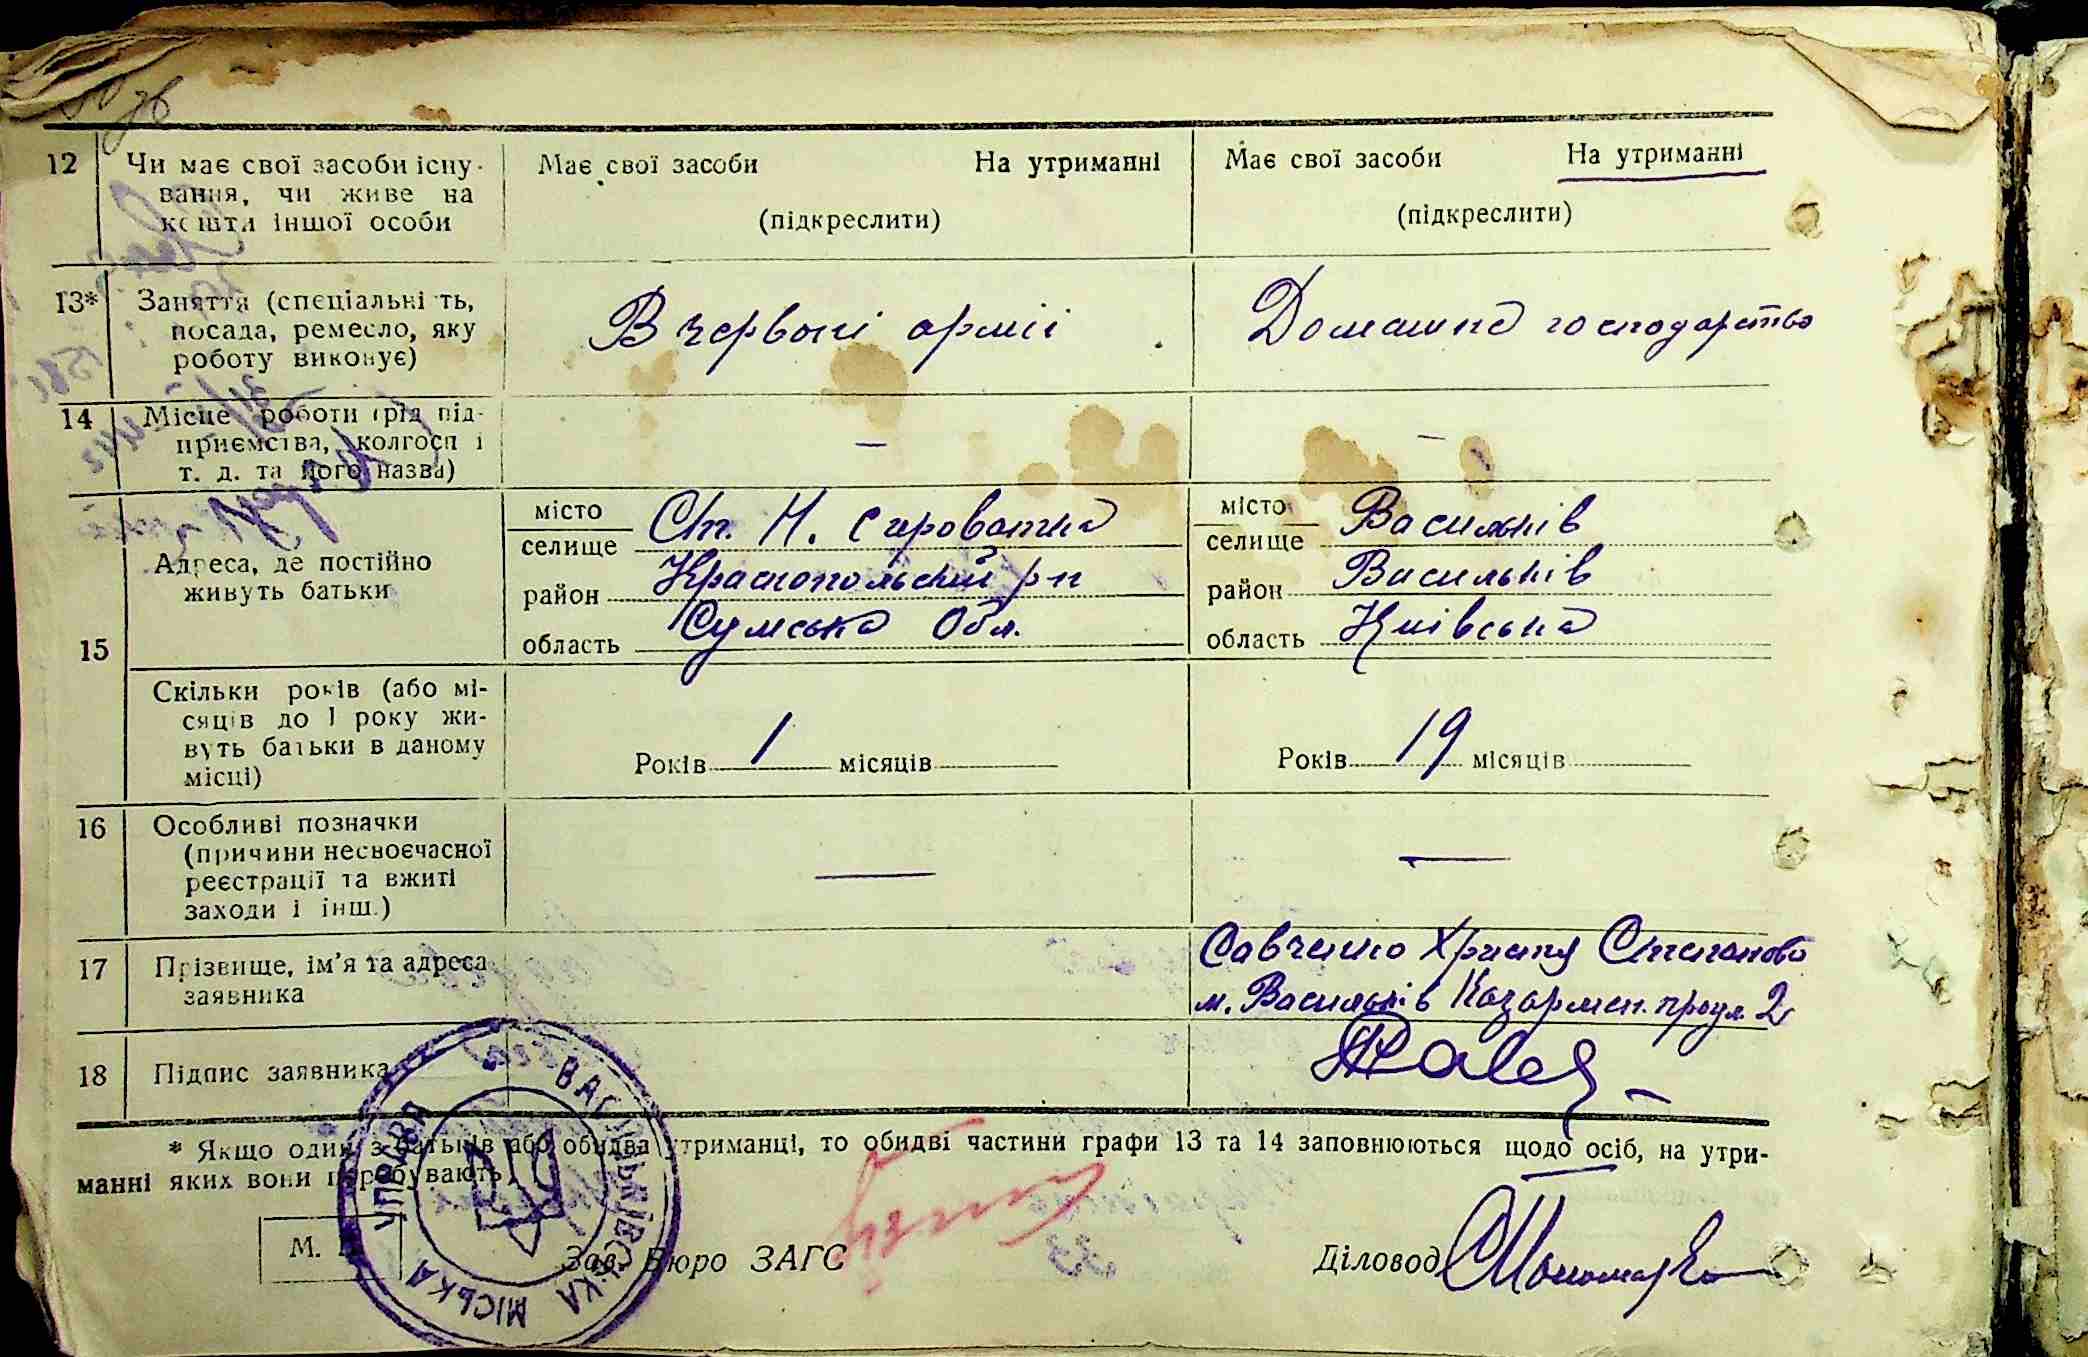 12 Чи має свої засоби існу-
вання, чи живе на
кошти іншої особи
Має свої засоби На утриманні
(підкреслити)
Має свої засоби На утриманні
(підкреслити)
13* Заняття (спеціальність,
посада, ремесло, яку
роботу виконує)
В червоні армії
Домашнє господарство
14 Місце роботи (рід під-
приємства, колгосп і
т. д. та його назва)
—
—
15
Адреса, де постійно
живуть батьки
місто
селище Ст. Н. Сироватка
район Краснопольский р-н
область Сумська Обл.
місто
селище Васильків
район Васильків
область Київська
Скільки років (або мі-
сяців до 1 року жи-
вуть батьки в даному
місці)
Років 1 місяців
Років 19 місяців
16 Особливі позначки
(причини несвоєчасної
реєстрації та вжиті
заходи і інш.)
—
—
17 Прізвище, ім'я та адреса
заявника
Савченко Христя Степанова
м. Васильків Казармен. проул 2
18 Підпис заявника
* Якщо один з батьків або обидва утриманці, то обидві частини графи 13 та 14 заповнюються щодо осіб, на утри-
манні яких вони перебувають.
М.
Зав. Бюро ЗАГС
Діловод
ВАСИЛЬКІВСЬКА МІСЬКА УПРАВА